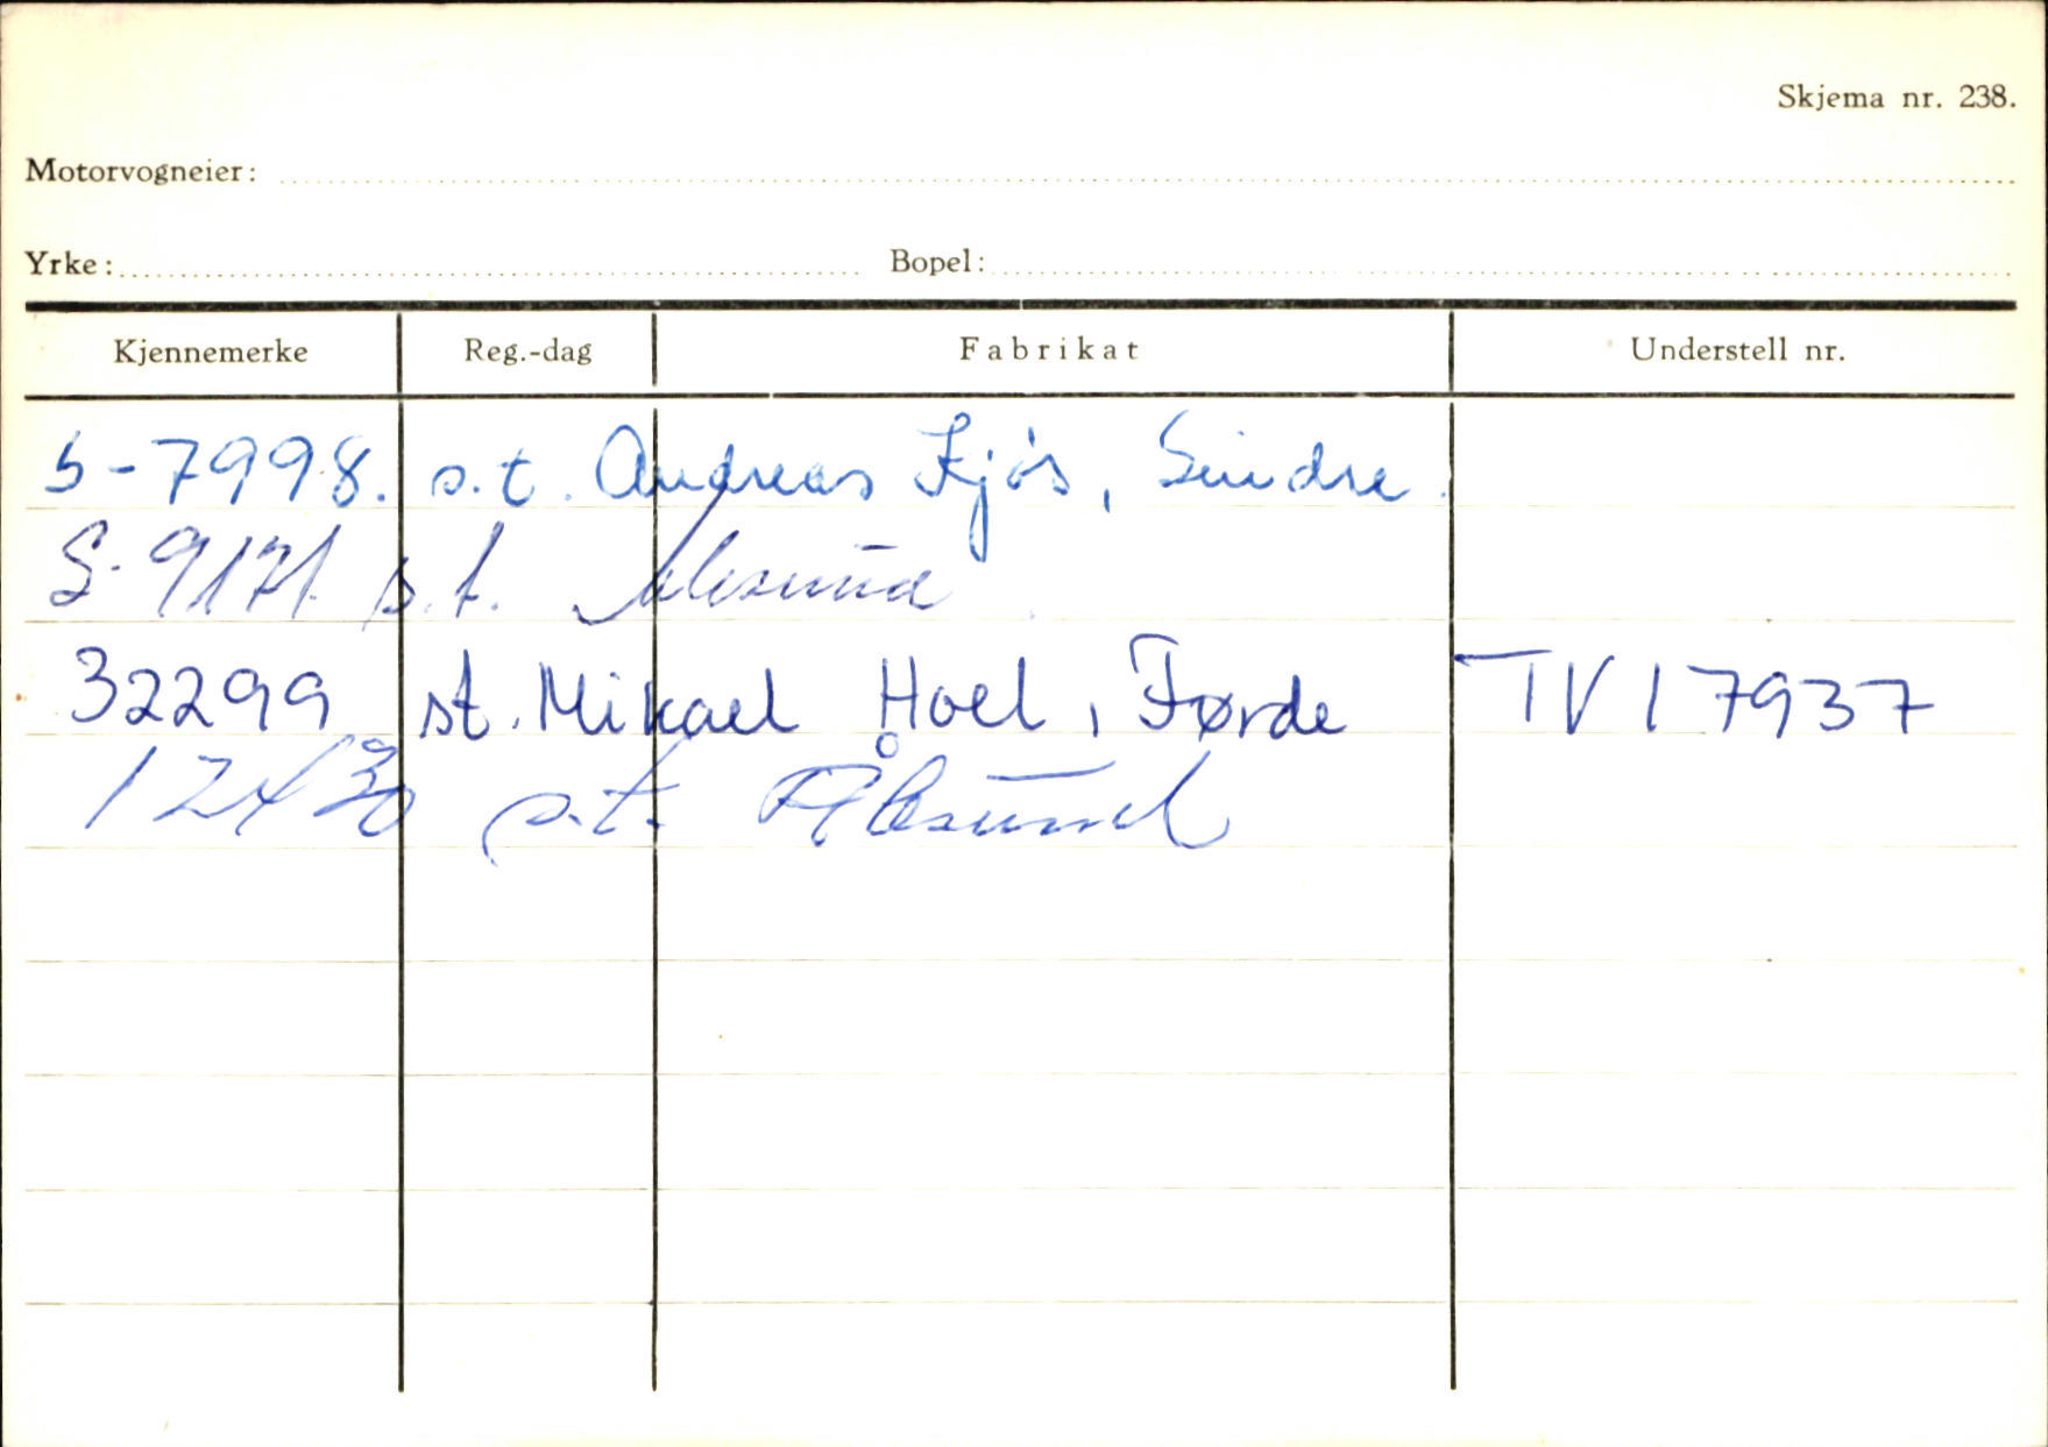 Skjema nr. 238.
Motorvogneier:
Yrke: Bopel:
Kjennemerke Reg.-dag Fabrikat Understell nr.
S-7998. s.t. Andreas Kjös, Seindre.
S-9171. s.t. Ålesund
32299 st. Mikael Hoel, Førde TV 17937
12430 s.t. Ålesund